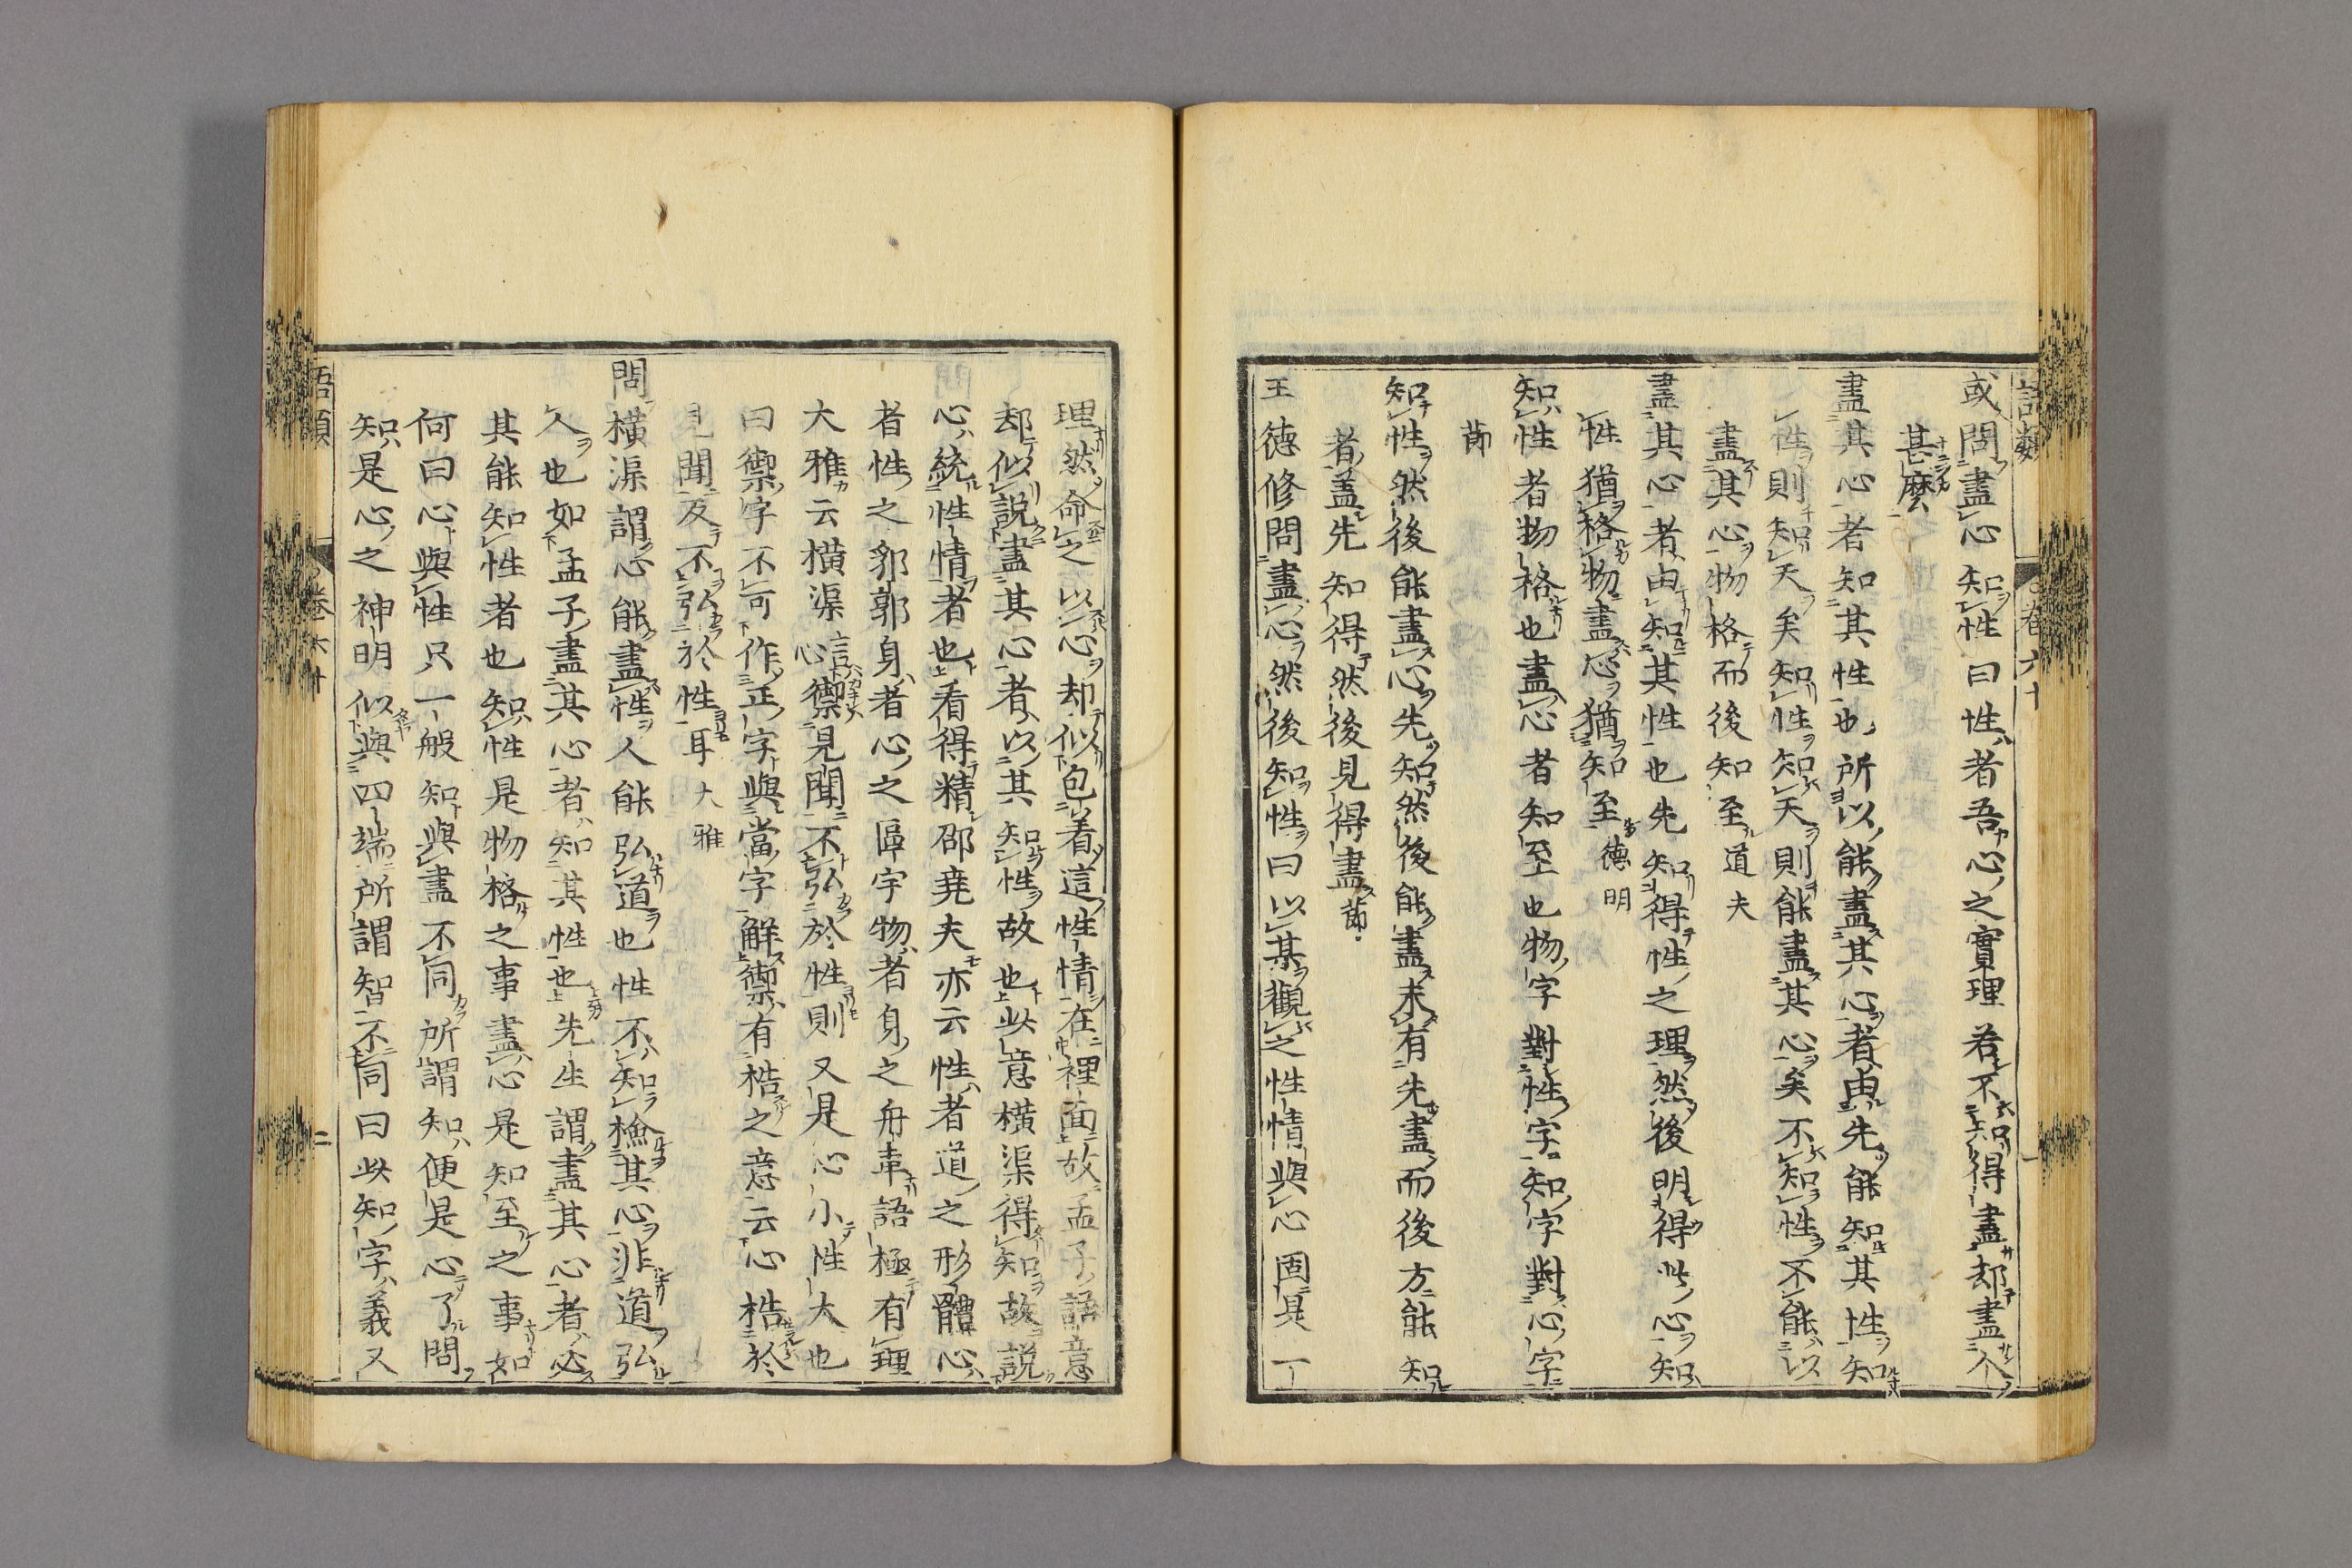 語類 卷六十 一
或問盡心知性曰性者吾心之實理若不知得盡却盡个
甚麼
盡其心者知其性也所以能盡其心者由先能知其性知
性則知天矣知性知天則能盡其心矣不知性不能以
盡其心物格而後知至道夫
盡其心者由知其性也先知得性之理然後明得此心知
性猶格物盡心猶知至德明
知性者物格也盡心者知至也物字對性字知字對心字
節
知性然後能盡心先知然後能盡未有先盡而後方能知
者盖先知得然後見得盡節
王德修問盡心然後知性曰以某觀之性情與心固是一
理然命之以心却似包着這性情在裡面故孟子語意
却似說盡其心者以其知性故也此意橫渠得知故說
心統性情者也看得精邵堯夫亦云性者道之形體心
者性之郛郭身者心之區宇物者身之舟車語極有理
大雅云橫渠言心禦見聞不弘於性則又是心小性大也
曰禦字不可作正字與當字解禦有梏之意云心梏於
見聞反不弘於性耳大雅
問橫渠謂心能盡性人能弘道也性不知檢其心非道弘
人也如孟子盡其心者知其性也先生謂盡其心者必
其能知性者也知性是物格之事盡心是知至之事如
何曰心與性只一般知與盡不同所謂知便是心了問
知是心之神明似與四端所謂智不同曰此知字義又
語類 卷六十 二